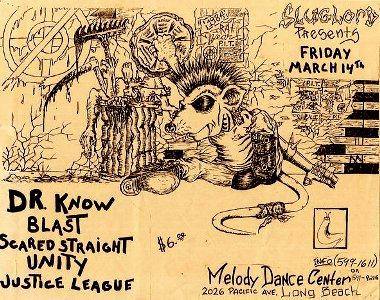 SLUGLORD
PRESENTS
FRIDAY
MARCH 14TH
DR. KNOW
BLAST
SCARED STRAIGHT
UNITY
JUSTICE LEAGUE
$6.00
INFO (599-1611)
OR
Melody Dance Center
2026 PACIFIC AVE, Long Beach